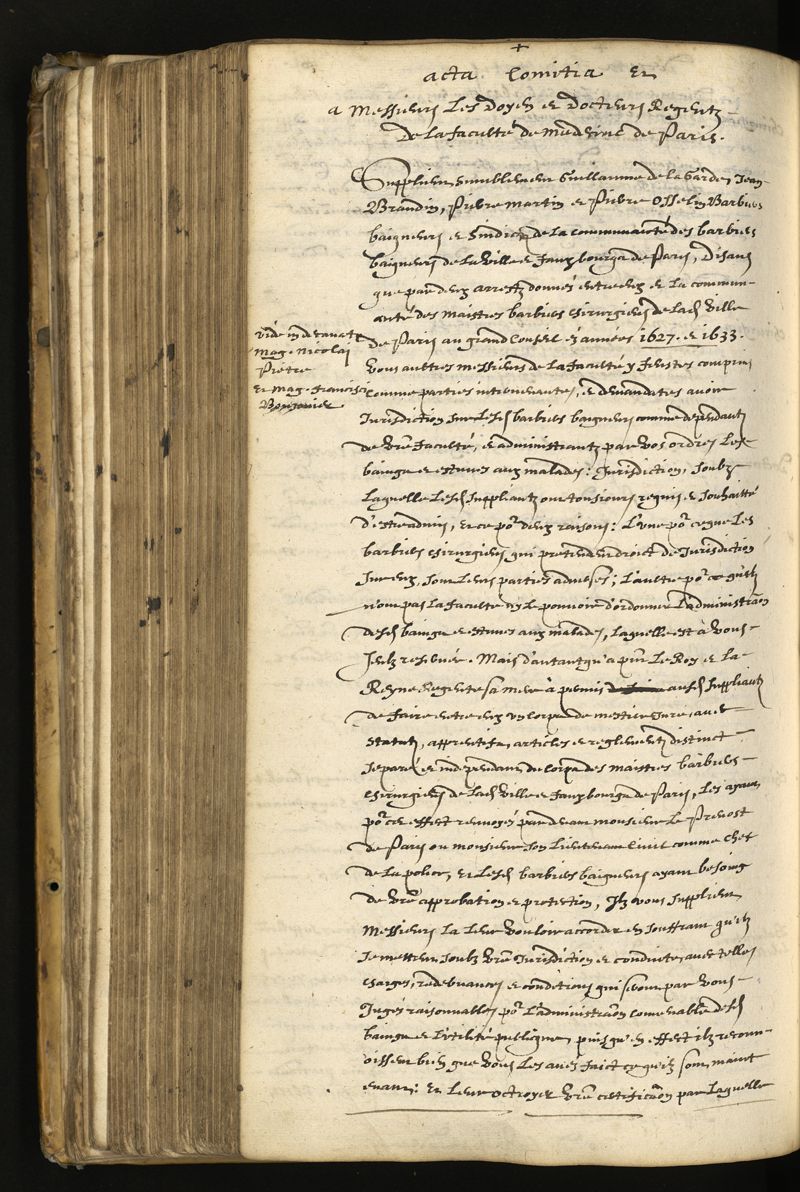 acta Comitia et
a Messieurs Les Doyen et Docteurs Regentz
De la faculté de medecine de Paris.
Supplient humblement Guillaume de la Garde, Jean
Brandin, Pierre Martin et Pierre Osselin Barbiers
baigneurs et sindicz de la communauté des barbiers
baigneurs de la Ville et Fauxbourgs de Paris, Disans
que par deux arrestz donnés entre eux et la commun-
auté des maistres barbiers chirurgiens de lad. Ville
de Paris au grand Conseil es années 1627. et 1633.
Vous aultres messieurs de la faculté y fustes compris
comme parties intervenantes, et demandates avoir
Jurisdiction sur lesd. barbiers baigneurs comme dependants
de vre faculté, et administrantz par vos ordres les
bains et estuves aux malades: Jurisdiction, soubz
Laquelle lesd. suppliantz ont tousiours requis et souhaitté
d'estre admis, et ce por deux raisons: L'une por ce que les
barbiers chirurgiens qui pretendent droict de Jurisdiction
sur eux, sont leurs parties adverses; L'aultre por ce qu'ilz
n'ont pas la faculté ny le pouvoir d'ordonner L'administraon
desd. bains et estuves aux malades, laquelle est à vous
seulz reservée. Mais d'autant qu'a pnt Le Roy et la
Reyne Regente sa mere à permis ausd. suppliantz
de faire entre eux un corps de mestier Juré, avec
statutz, apprentifs, articles et reglements distinct
separé et independant du corps des maistres barbiers
chirurgiens de lad. Ville et fauxbourgs de Paris, les ayant
por cet effect renvoyés pardevant monsieur le Prevost
de Paris ou monsieur son Lieutenant Civil comme chef
de la police, et lesd. barbiers baigneurs ayant besoing
de vre approbation et protection, Ilz vous supplient
Messieurs la leur vouloir accorder en souffrant qu'ilz
se mettent soubz vre Jurisdiction et conduite, avec telles
charges, redevances et conditions qui seront par vous
Jugés raisonnables por L'administraon convenable desd.
bains et l'utilité publique, puis qu'en effect ilz recon-
oissent bien que vous les avés faict ce qu'ilz sont maint
enant: Et leur octroyer vre certificaon par laquelle
vide in decanatu
Mag. Nicolai
Pietre
et Mag. Francisci